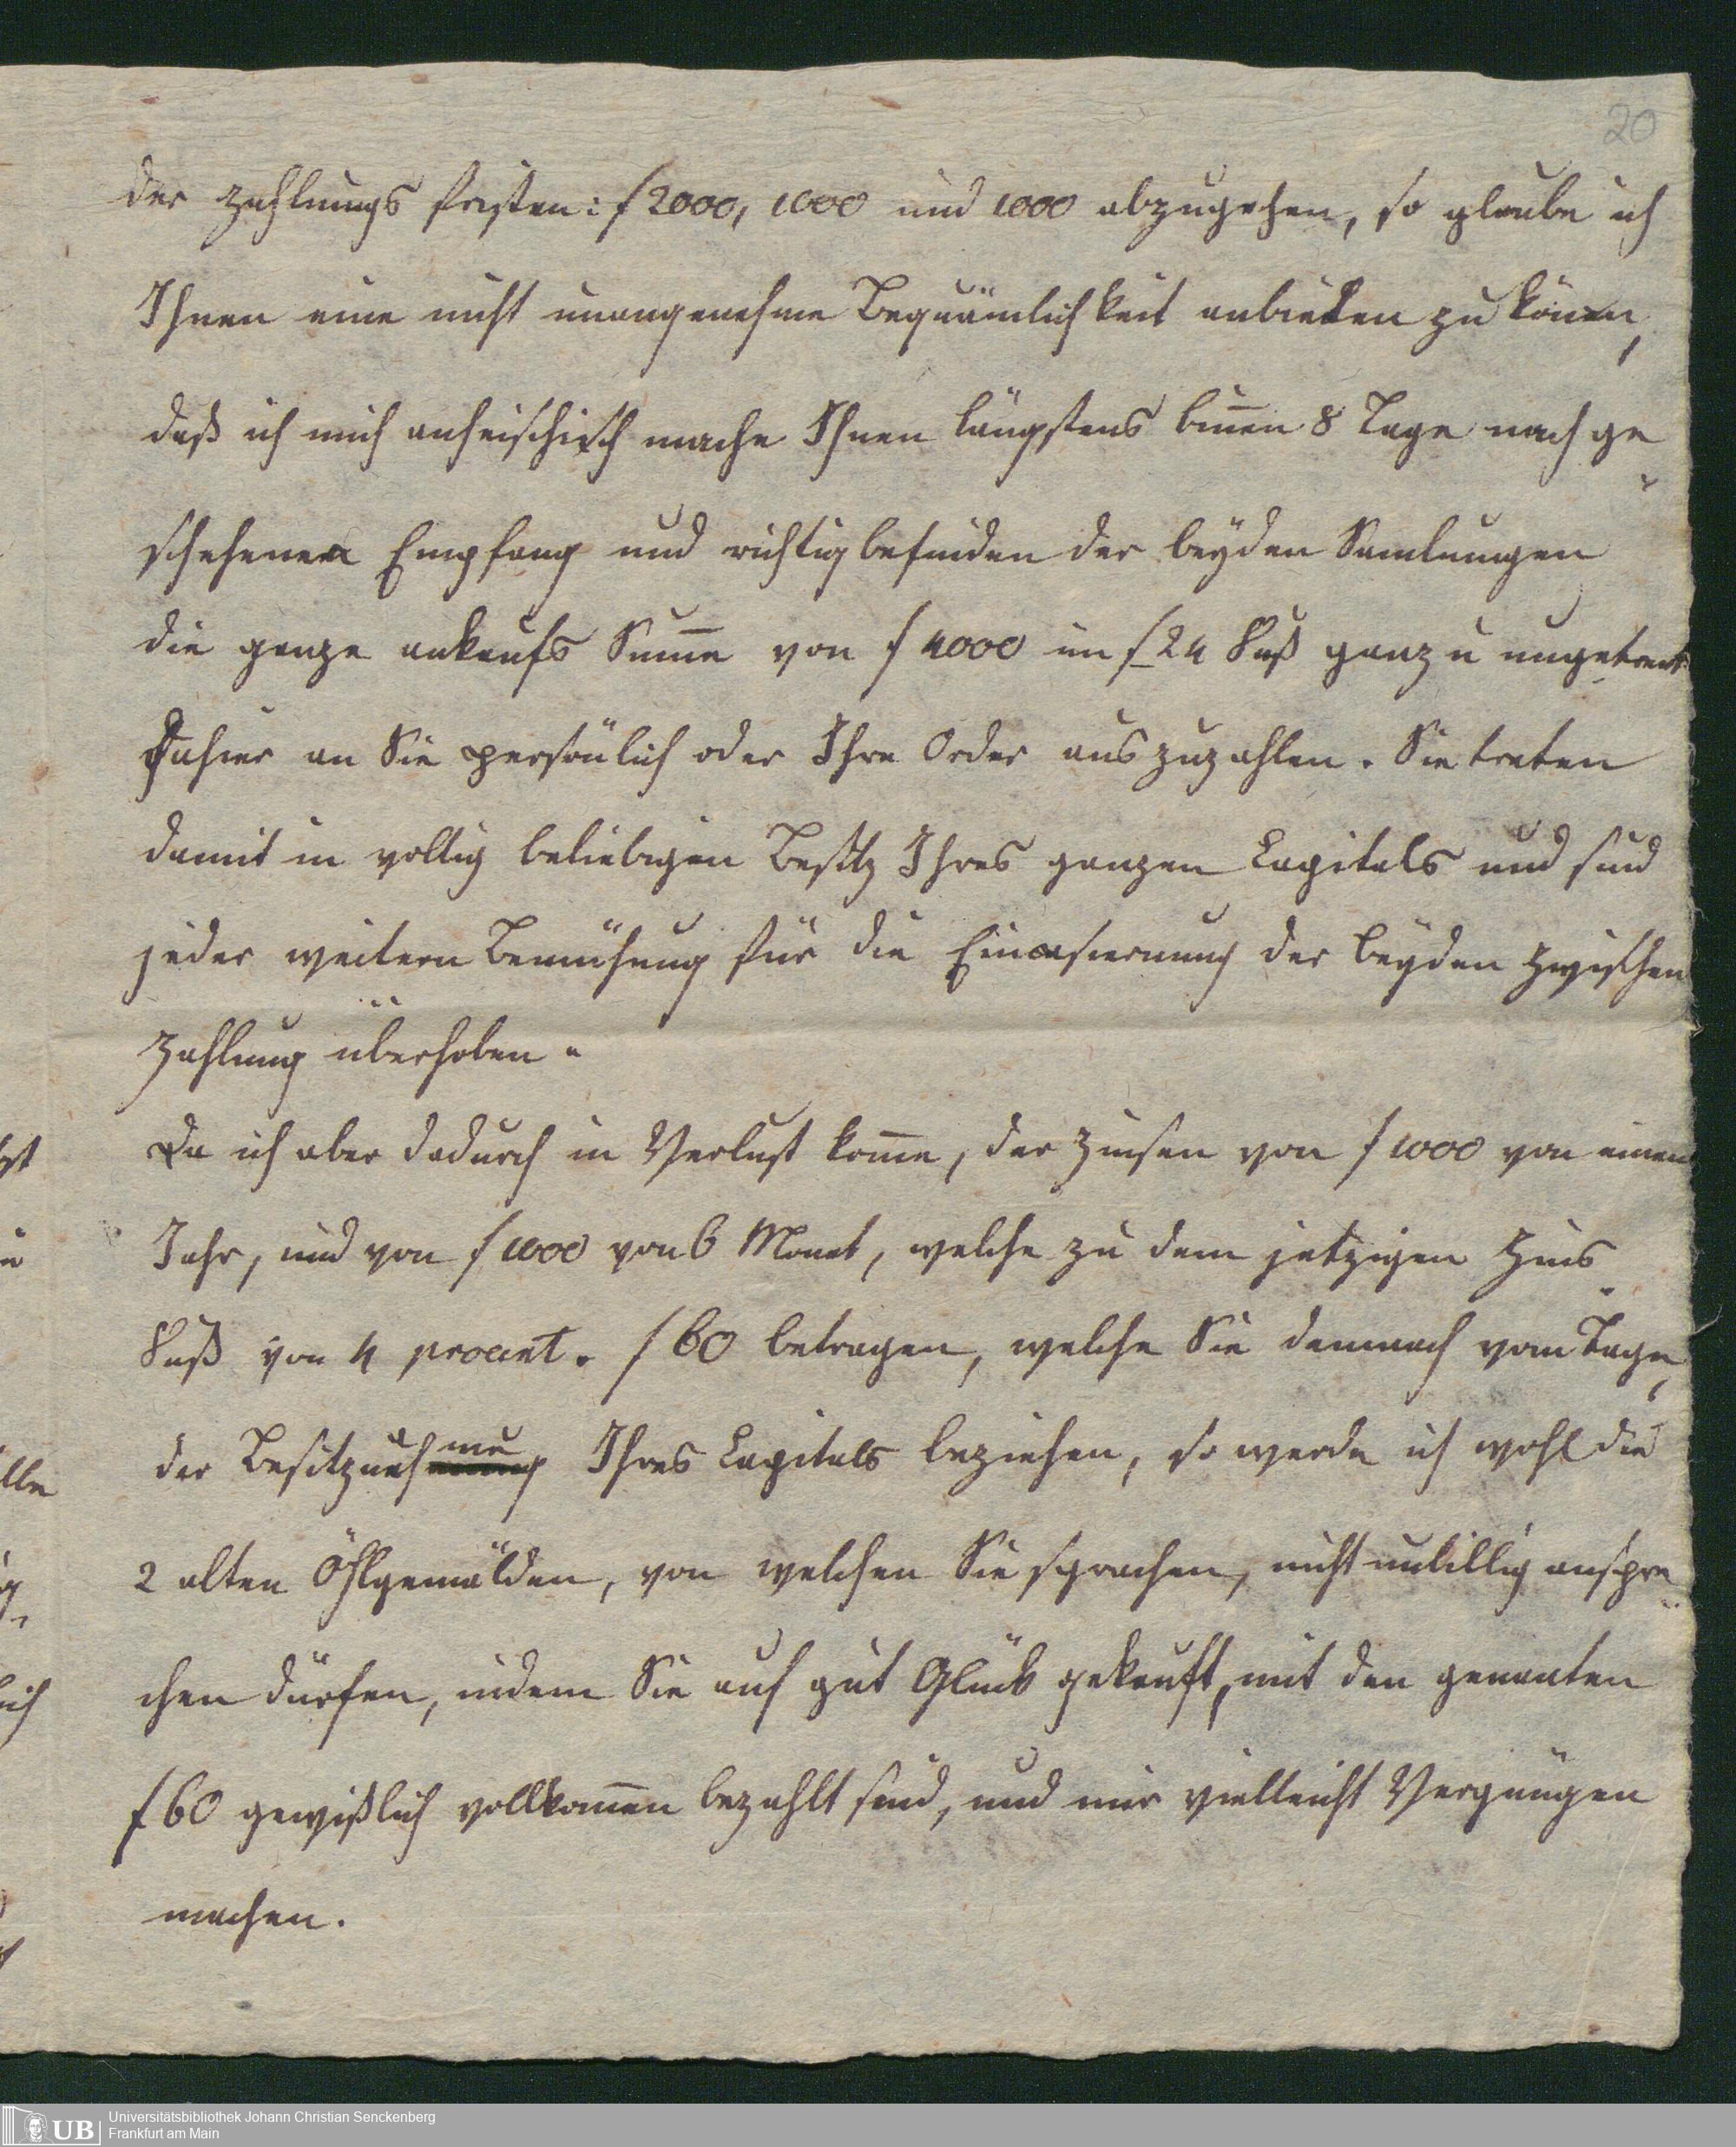 20
der Zahlungs fristen: f 2000, 1000 und 1000 abzugehen, so glaube ich
Ihnen eine nicht unangenehme Bequämlichkeit anbieten zu kön̄en,
daß ich mich anheischisch mache Ihnen längstens bin̄en 8 Tage nach ge
schehenen Empfang und richtigbefinden der beyden Samlungen
die ganze ankaufs Sum̄e von f 4000 im f 24 Fuß ganz u ungetrent
Dahier an Sie persönlich oder Ihre Order auszuzahlen. Sie treten
damit in vollig beliebigen Besitz Ihres ganzen Capitals und sind
jeder weitern Bemühung für die Eincassierung der beyden Zwischen
Zahlung überhoben.
Da ich aber dadurch in Verlust kom̄e, der Zinsen von f 1000 von einem
Jahr, und von f 1000 von 6 Monat, welche zu dem jetzigen Zins
Fuß von 4 procent. f 60 betragen, welche Sie demnach vom Tage,
der Besitznahme Ihres Capitals beziehen, so werde ich wohl die
2 alten Öhlgemälden, von welchen Sie sprachen, nicht unbillig anspre
chen dürfen, indem Sie auf gut Glück gekauft, mit den genanten
f 60 gewißlich vollkom̄en bezahlt sind, und mir vielleicht Vergnügen
machen.
UB
Universitätsbibliothek Johann Christian Senckenberg
Frankfurt am Main